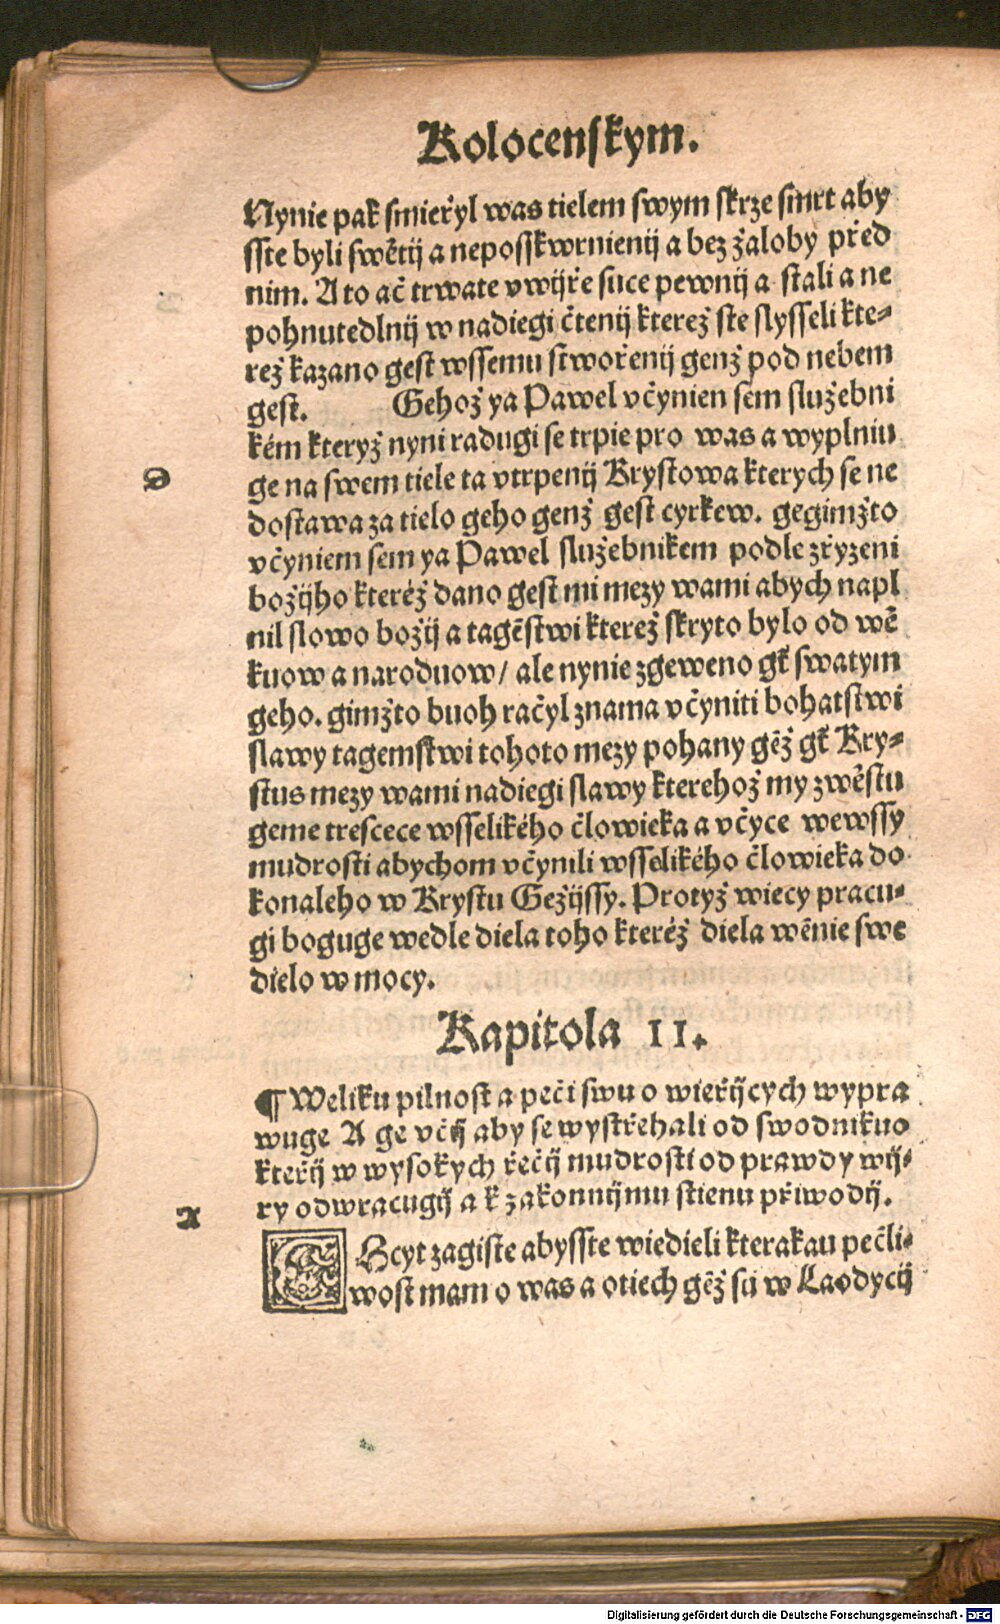 Kolocenskym.
Nynie pak smieřyl was tielem swym skrze smrt aby
sste byli swětij a neposskwrnienij a bez žaloby před
nim. A to ač trwate vwijře suce pewnij a stali a ne
pohnutedlnij w nadiegi čtenij kterež ste slysseli kte=
rež kazano gest wssemu stwořenij genž pod nebem
gest. Gehož ya Pawel včynien sem služebni
kém kteryž nyni radugi se trpie pro was a wyplniu
ge na swem tiele ta vtrpenij Krystowa kterych se ne
D
dostawa za tielo geho genž gest cyrkew. gegimžto
včyniem sem ya Pawel služebnikem podle zřyzeni
božijho kteréž dano gest mi mezy wami abych napl
nil slowo božij a tagēstwi kterež skryto bylo od wě
kuow a naroduow / ale nynie zgeweno gt̃ swatym
geho. gimžto buoh račyl znama včyniti bohatstwi
slawy tagemstwi tohoto mezy pohany gēž gt̃ Kry=
stus mezy wami nadiegi slawy kterehož my zwěstu
geme trescece wsselikého člowieka a včyce wewssy
mudrosti abychom včynili wsselikého člowieka do
konaleho w Krystu Gežijssy. Protyž wiecy pracu=
gi boguge wedle diela toho kteréž diela wēnie swe
dielo w mocy.
Kapitola II.
¶ Weliku pilnost a peči swu o wieřijcych wypra
wuge A ge včij aby se wystřehali od swodnikuo
kteřij w wysokych řečij mudrosti od prawdy wij=
ry odwracugij a k zakonnijmu stienu přiwodij.
A
CHcyt zagiste abysste wiedieli kterakau pečli=
wost mam o was a otiech gēž su w Laodycij
Digitalisierung gefördert durch die Deutsche Forschungsgemeinschaft - DFG